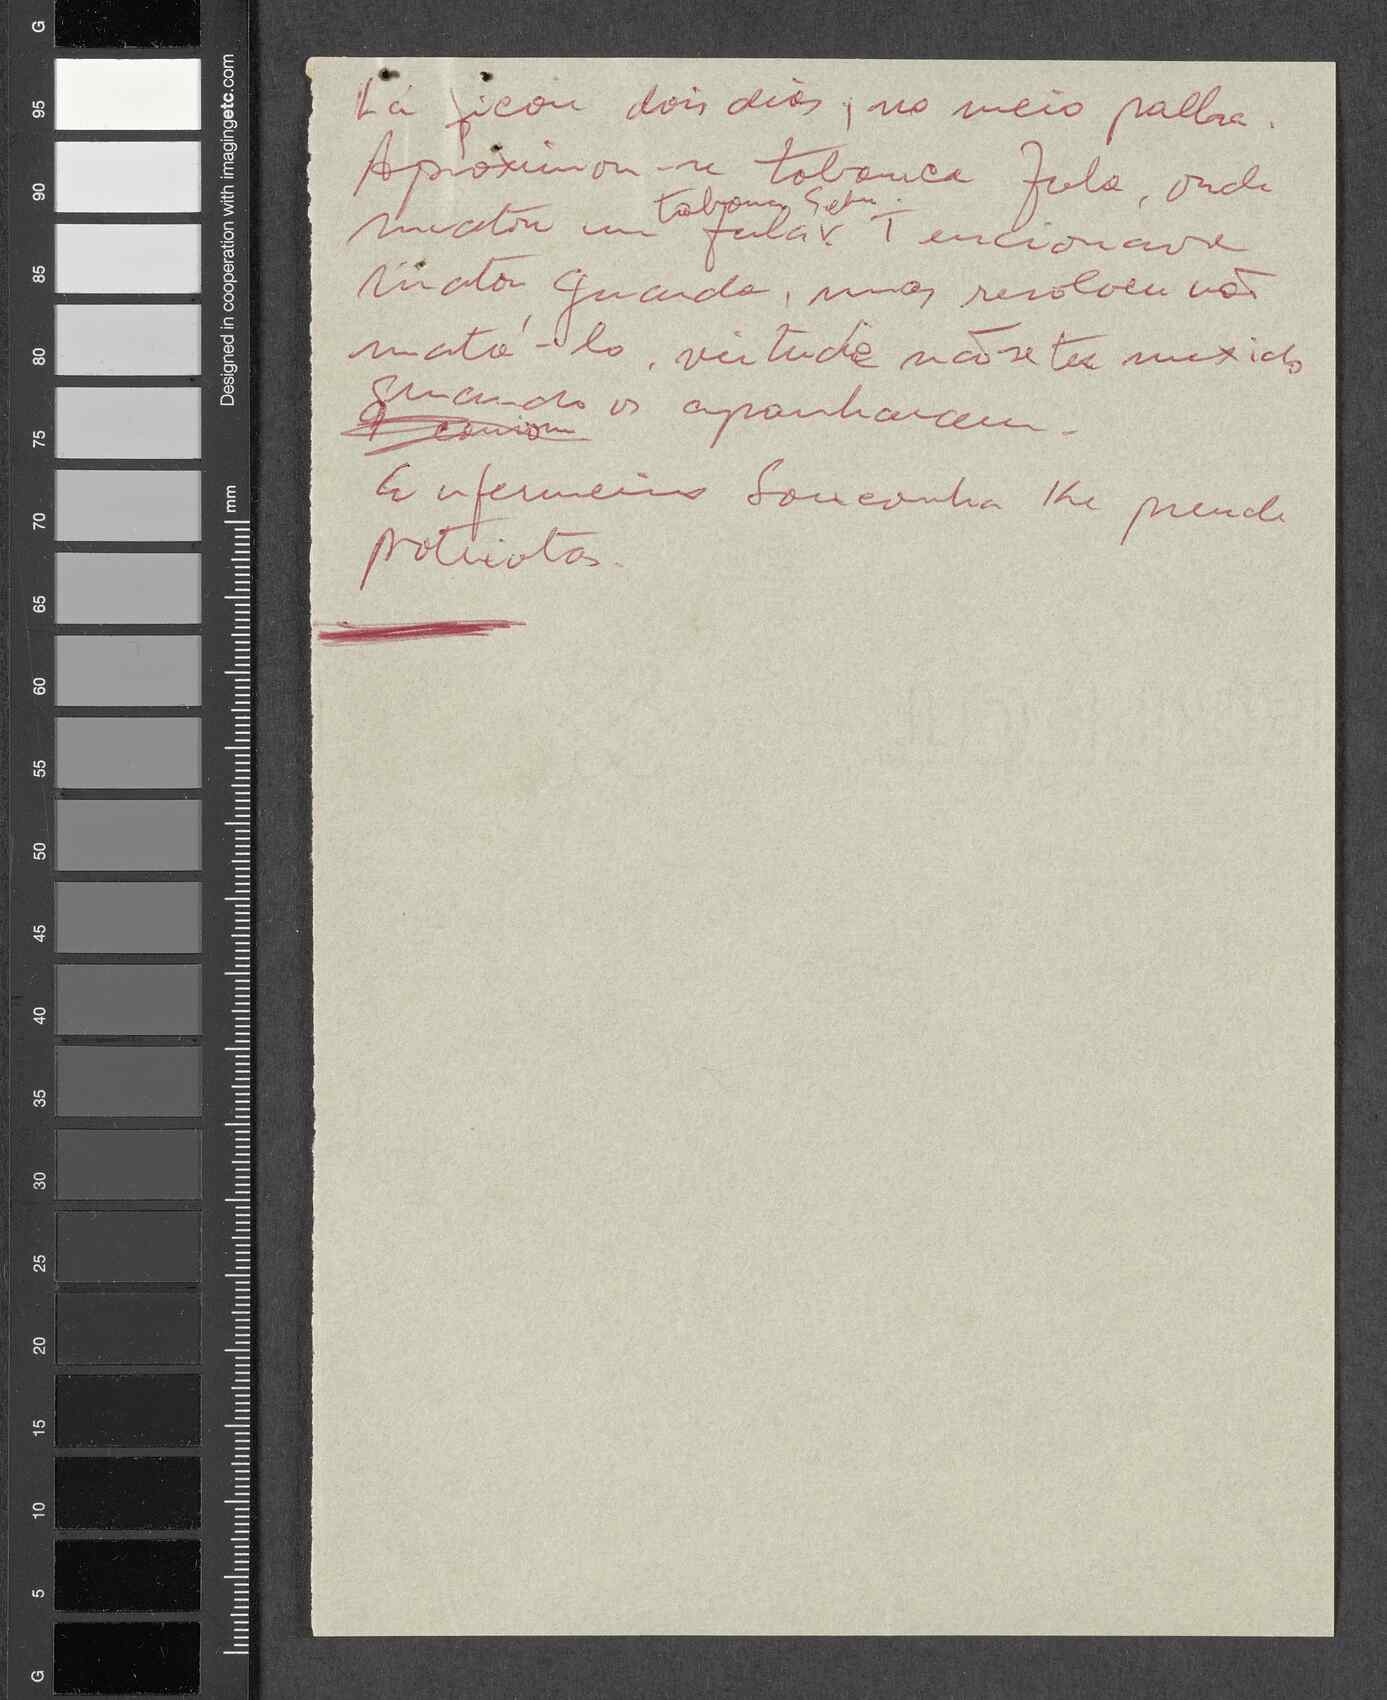 G
95
90
85
80
75
70
65
60
55
50
45
40
35
30
25
20
15
10
5
G
Designed in cooperation with imagingetc.com
mm
Lá ficou dois dias, no meio palha.
Aproximou-se tabanca Fula, onde
tabanca
matou um fula. Tencionava
matar guarda, mas resolveu não
matá-lo, virtude não se ter mexido
quando os apanharam.
Enfermeiro prende
patriotas.